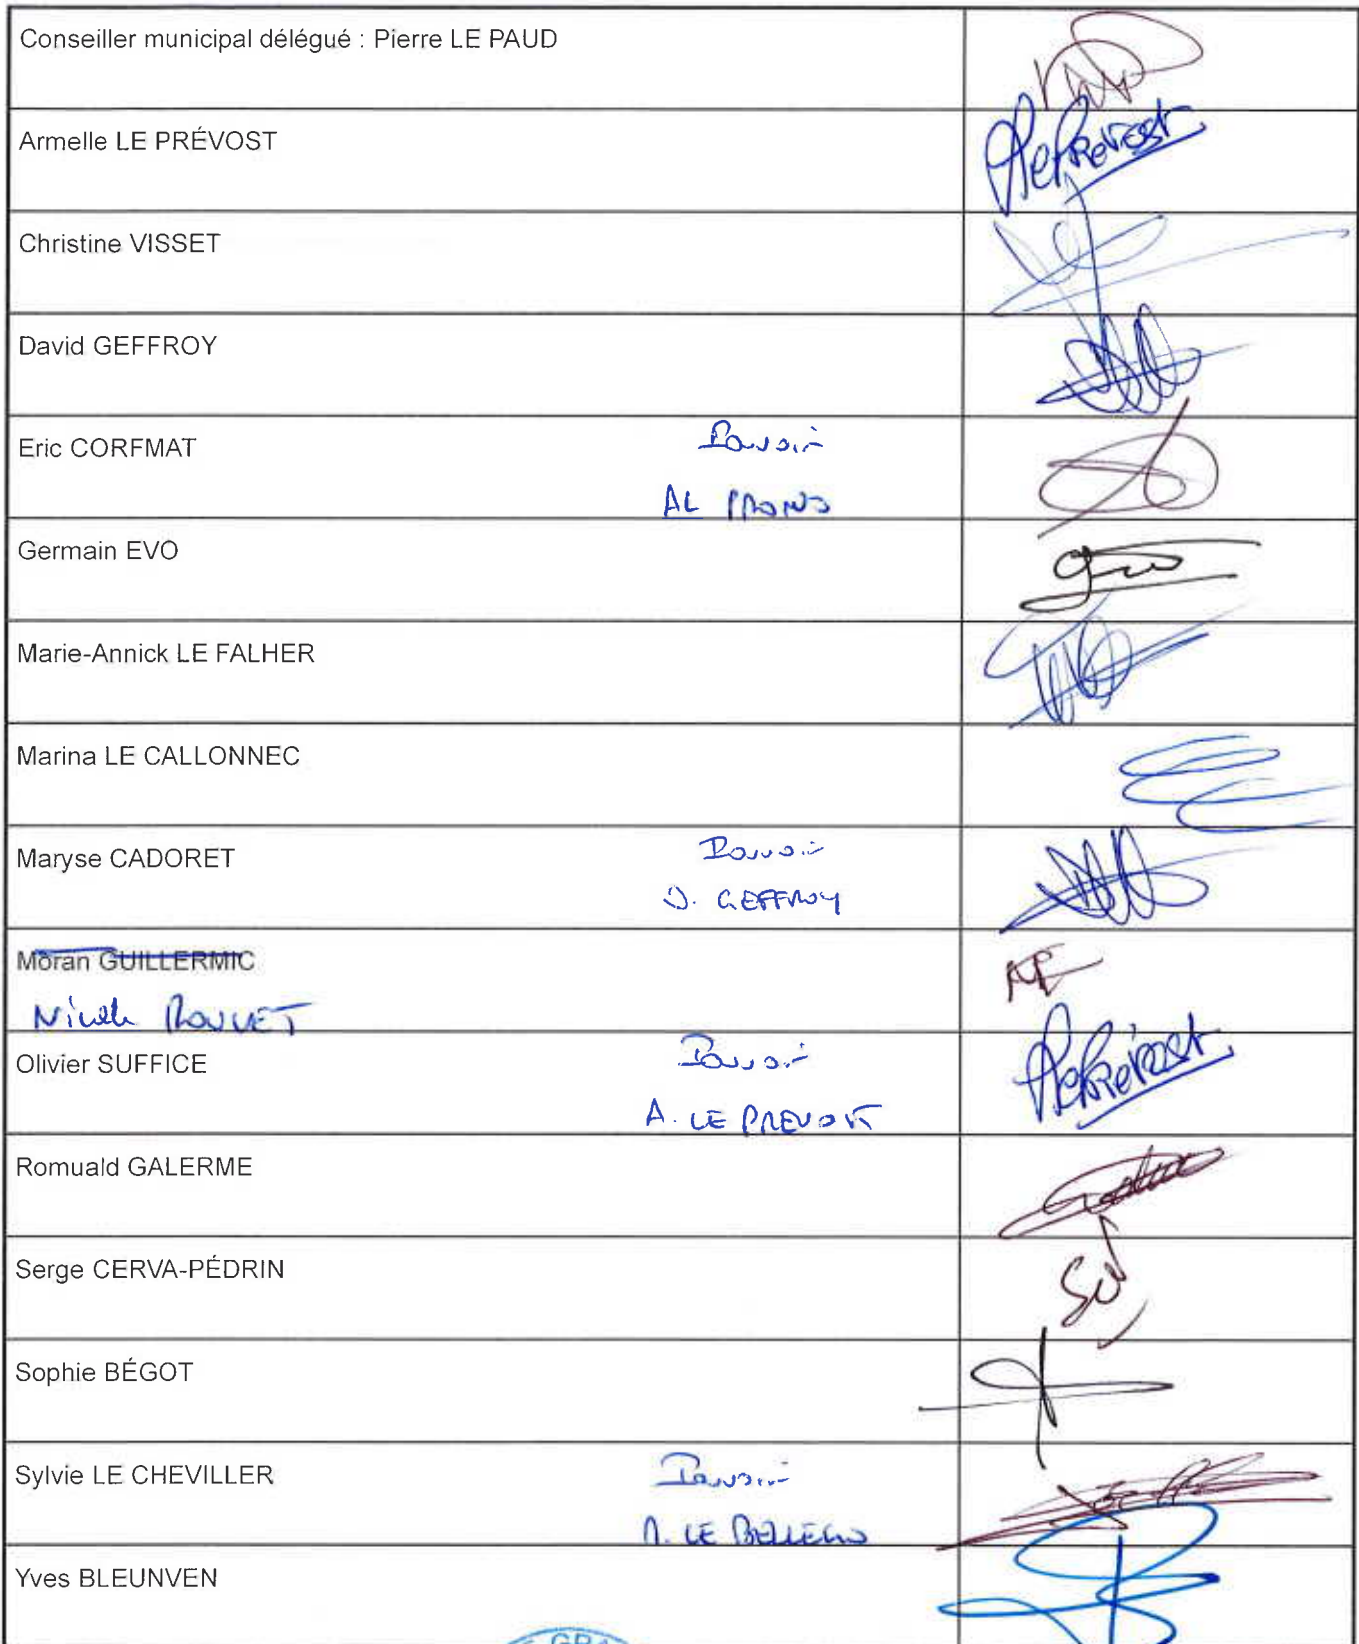 Conseiller municipal délégué : Pierre LE PAUD
Armelle LE PRÉVOST
LePrévost
Christine VISSET
David GEFFROY
Eric CORFMAT
Pouvoir
AL
Germain EVO
Marie-Annick LE FALHER
Marina LE CALLONNEC
Maryse CADORET
Pouvoir
D. GEFFROY
Moran GUILLERMIC
Nicole
Olivier SUFFICE
Pouvoir
A. LE PREVOST
LePrévost
Romuald GALERME
Serge CERVA-PÉDRIN
Sophie BÉGOT
Sylvie LE CHEVILLER
Pouvoir
LE BELLEGO
Yves BLEUNVEN